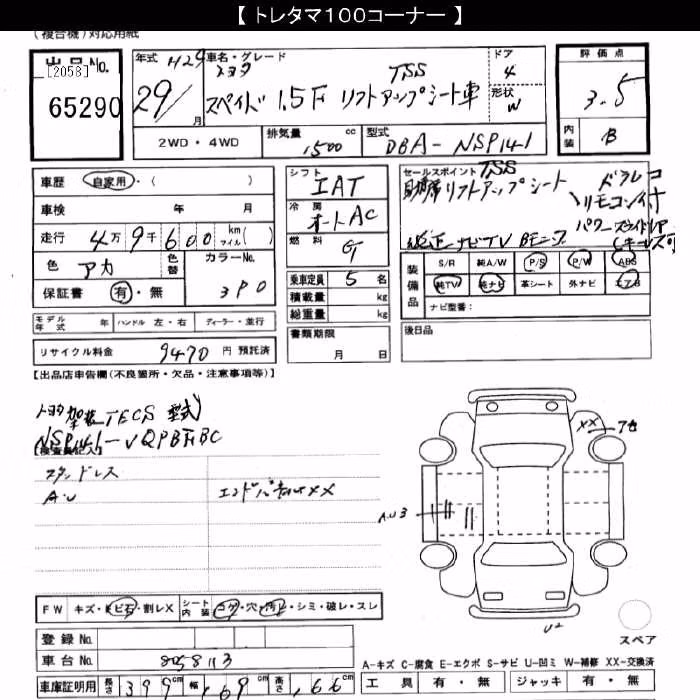 【 トレタマ100コーナー 】
(複合機)対応用紙
出品No.
[2058]
65290
年式 H29
29/ 月
車名・グレード
トヨタ TSS
スペイド 1.5F リフトアップシート車
ドア 4
形状 W
評価点
3.5
内装 B
2WD・4WD
排気量 1500 cc
型式 DBA-NSP141
車歴 自家用・( )
車検 年 月
走行 4万 9千 600 km マイル( )
色 アカ 色替
カラーNo. 3P0
保証書 有・無
シフト IAT
冷房 オートAC
燃料 G
乗車定員 5 名
積載量 kg
総重量 kg
書類期限
月 日
セールスポイント TSS
助手席リフトアップシート ドラレコ
リモコン付
パワースライドドア
純正ナビTV Bモニター
装備品
S/R 純A/W P/S P/W ABS
純TV 純ナビ 革シート 外ナビ エアB
ナビ型番:
モデル年式 年 ハンドル 左・右 ディーラー・並行
リサイクル料金 9470 円 預託済
後日品
【出品店申告欄(不良箇所・欠品・注意事項等)】
トヨタ架装TECS 型式
NSP141-VQPBEBC
【検査員記入】
スタッドレス
A・U
エンドパネルXX
XX アセ
A.U3
U2
FW キズ・トビ石・割レX
シート内装 コゲ・穴・汚レ・シミ・破レ・スレ
登録No.
車台No. 8058113
車庫証明用 長さ 399 cm 幅 169 cm 高さ 166 cm
スペア
A-キズ C-腐食 E-エクボ S-サビ U-凹ミ W-補修 XX-交換済
工具 有・無 ジャッキ 有・無